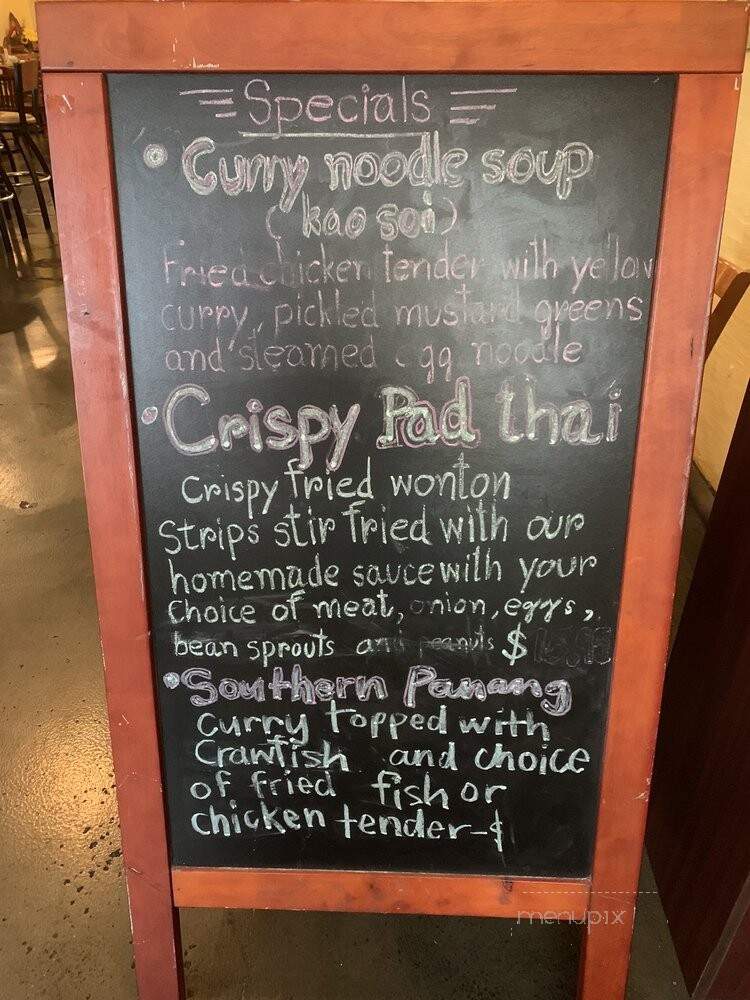 Specials
• Curry noodle soup
(kao soi)
Fried chicken tender with yellow
curry, pickled mustard greens
and steamed egg noodle
• Crispy Pad thai
Crispy fried wonton
Strips stir fried with our
homemade sauce with your
choice of meat, onion, eggs,
bean sprouts and peanuts $
• Southern Panang
curry topped with
Crawfish and choice
of fried fish or
chicken tender-$
menupix